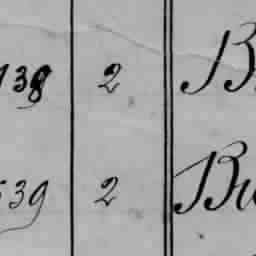 138 2 B
539 2 Br